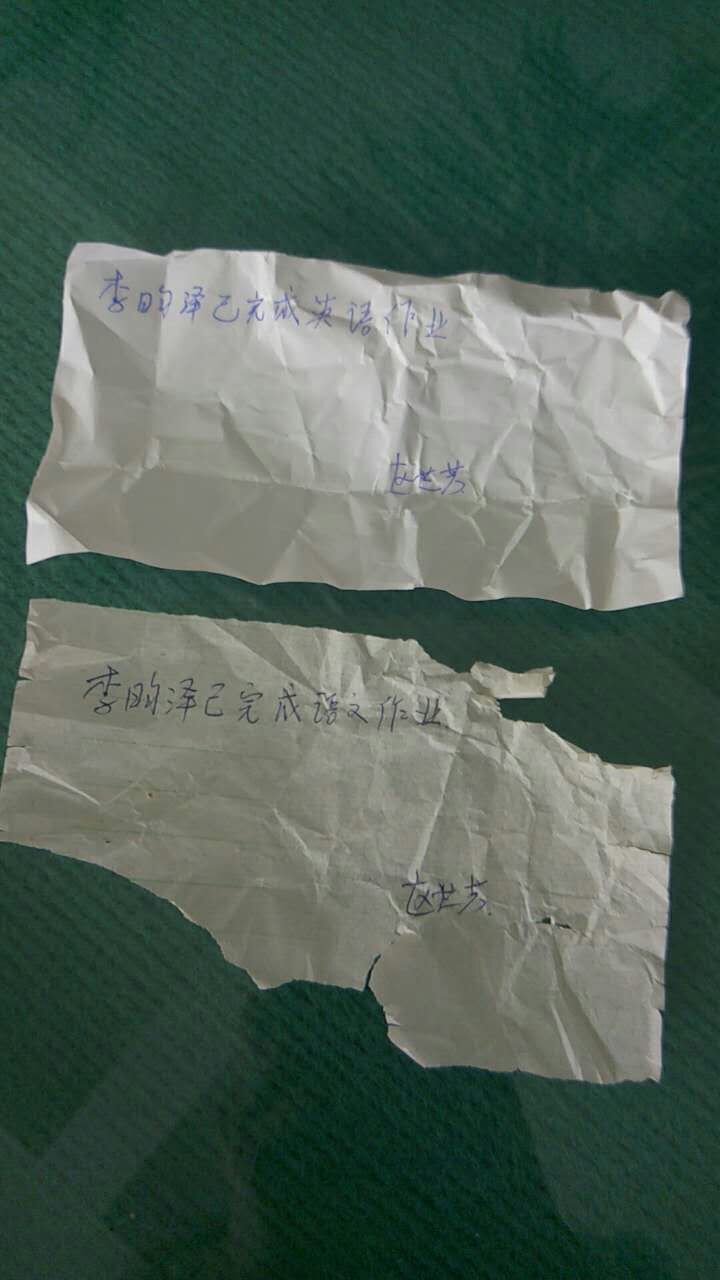 李昀泽已完成英语作业
赵世芳
李昀泽已完成语文作业
赵世芳